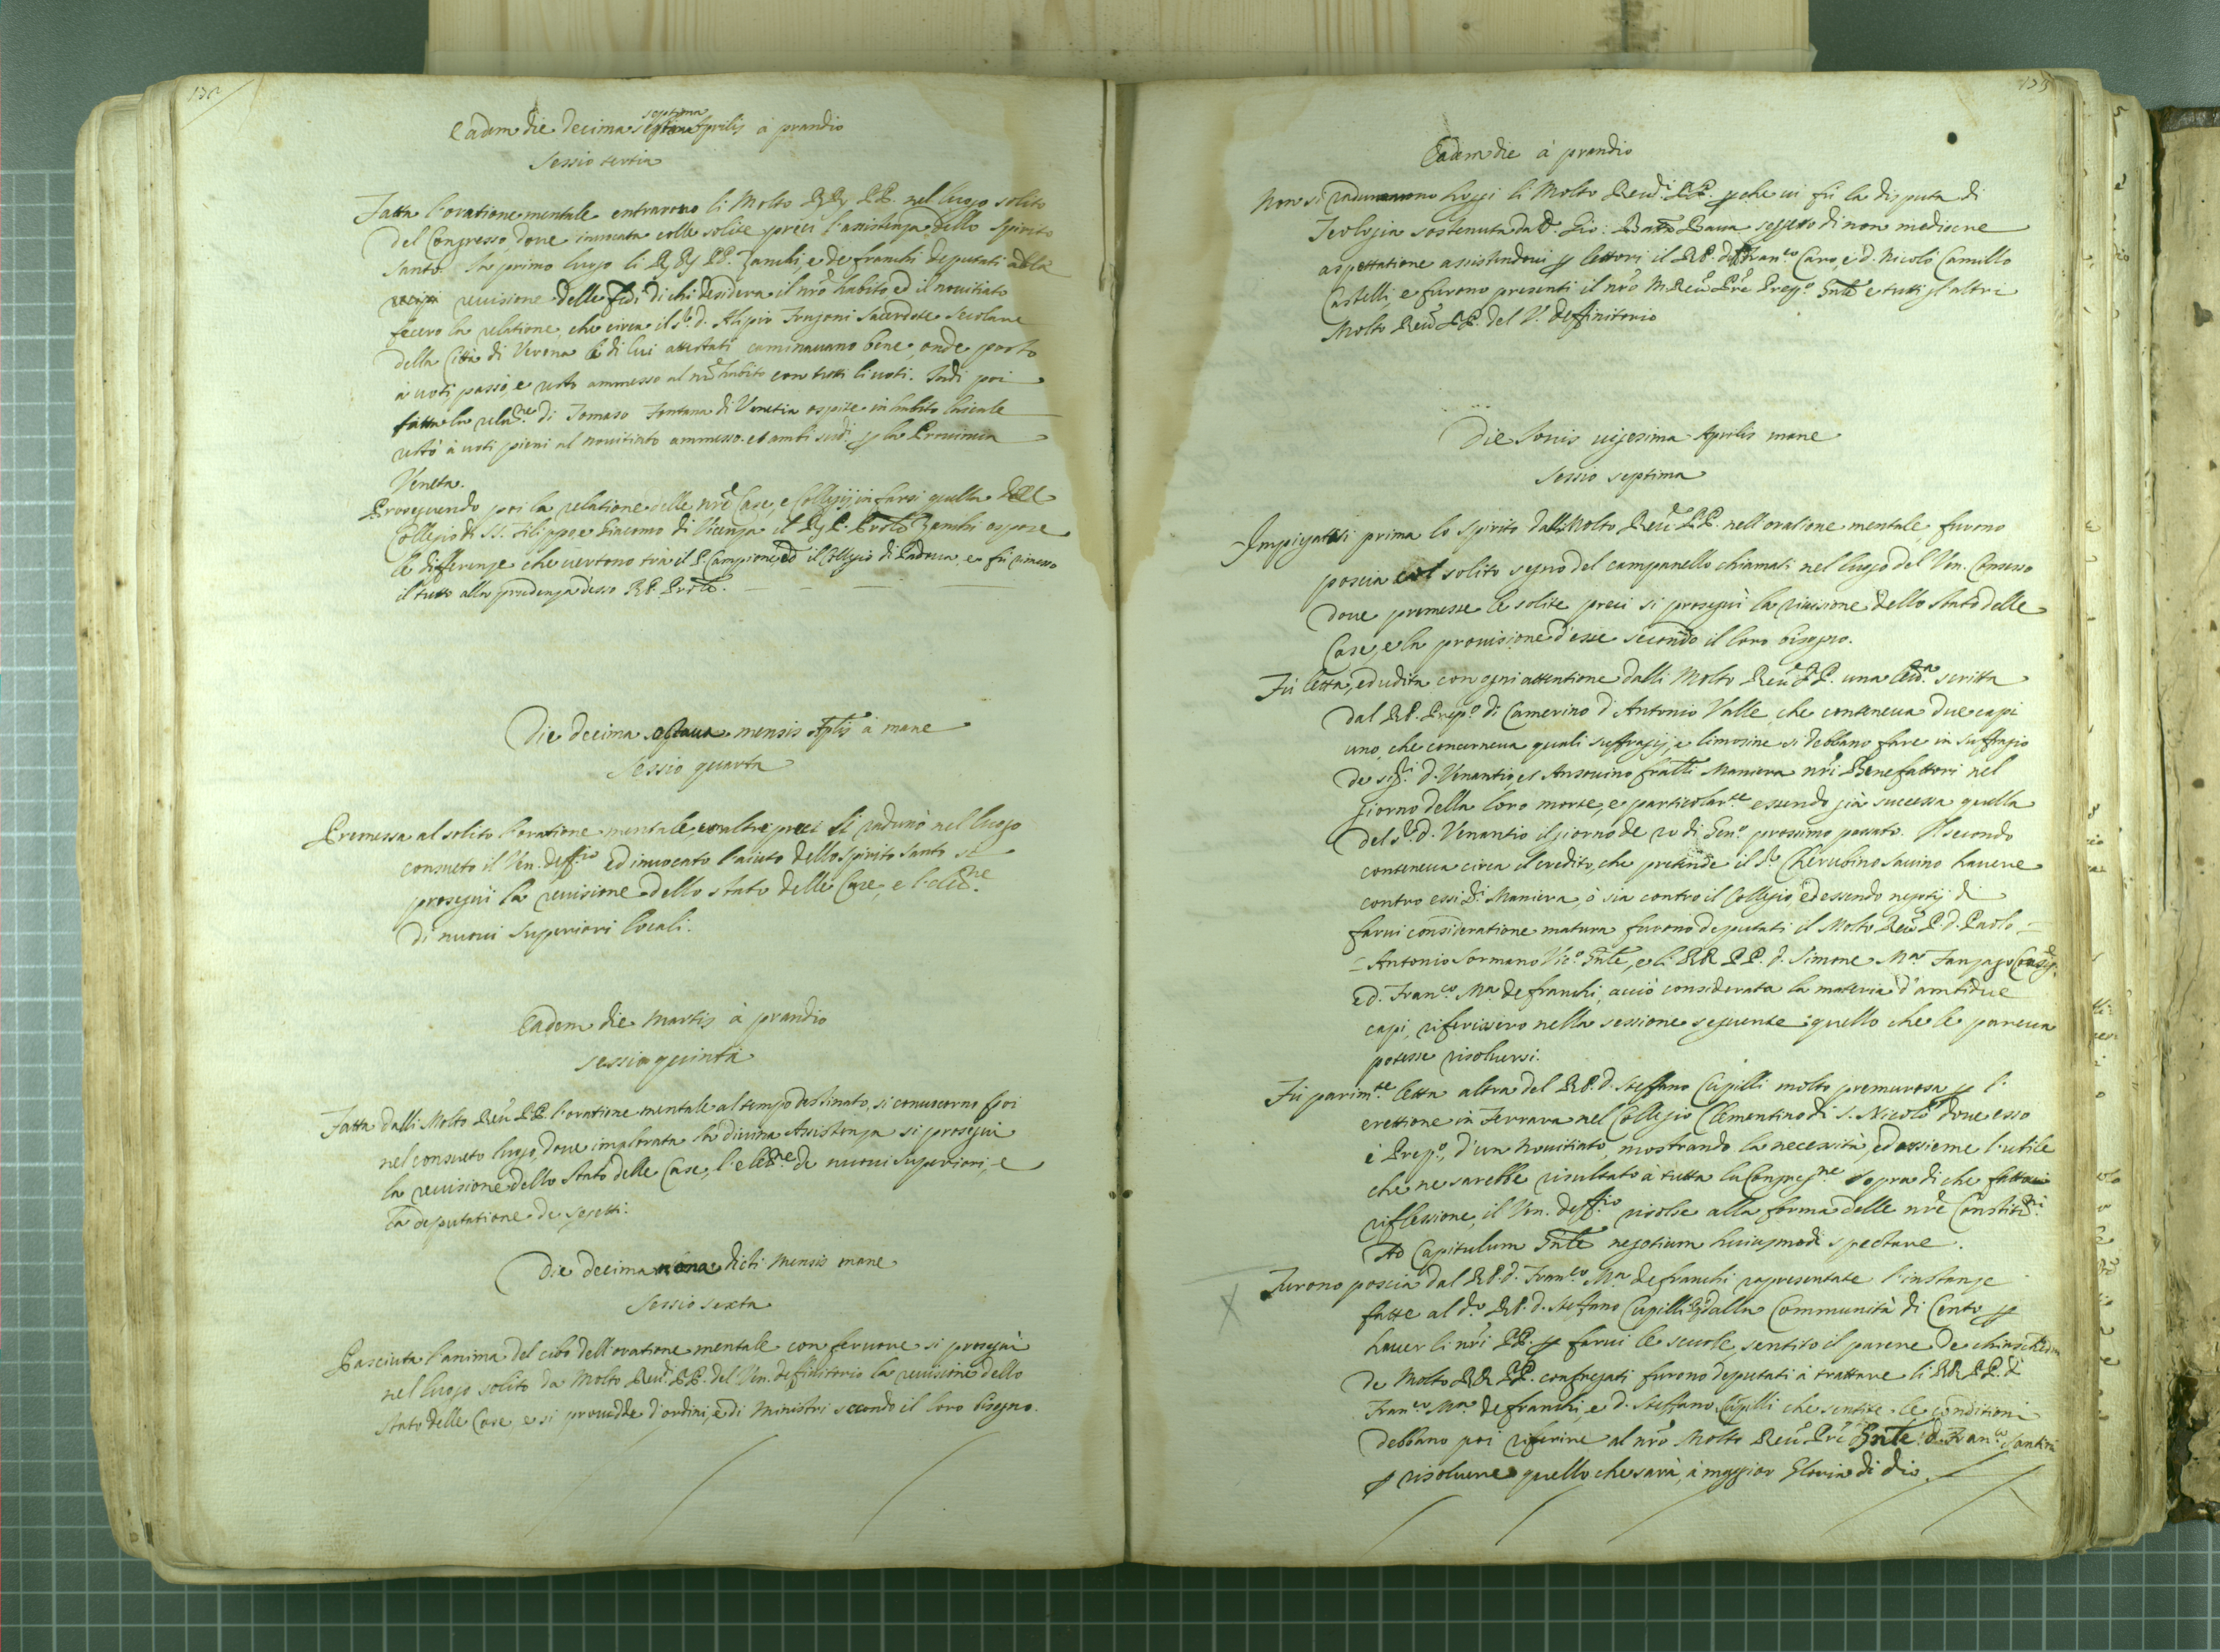 Eadem die decima septima Aprilis à prandio
septima
Sessio tertia
Fatta l'oratione mentale entrarono li Molto RR PP. nel luogo solito
del Congresso dove invocata colle solite preci l'assistenza dello Spirito
Santo. In primo luogo li RR PP. Zanchi, e de franchi deputati alla
revisione delle fedi di chi desidera il nro habito ed il novitiato
fecero la relatione, che circa il Sr d. Alipio Fregoni Sacerdote Secolare
della Città di Verona li di lui attestati caminavano bene, onde posto
à voti passò, e restò ammesso al nro habito con tutti li voti. Indi poi
fatta la relane. di Tomaso Fontana di Venetia ospite in habito laicale
restò à voti pieni al novitiato ammesso. et ambi sudi. p la Provincia
Veneta.
Proseguendo poi la relatione delle nre Case, e Collegij in farsi quella del
Collegio di SS. Filippo, e Giacomo di Vicenza il R. P. Prole Zanchi espose
le differenze che vertono trà il P. Campione, ed il Collegio di Padova, e fù rimesso
il tutto alla prudenza d'esso R. P. Prole.
Die decima octava mensis Aplis à mane
Sessio quarta
Premessa al solito l'oratione mentale, con altre preci si radunò nel luogo
consueto il Ven. deffrio ed invocato l'aiuto dello Spirito Santo si
proseguì la revisione dello stato delle Case, e l'elene.
di nuovi Superiori locali.
Eadem die Martis à prandio
Sessio quinta
Fatta dalli Molto Reu. PP. l'oratione mentale al tempo destinato, si convocorno poi
nel consueto luogo, dove implorata la divina Assistenza si proseguì
la revisione dello Stato delle Case, l'elene. de nuovi Superiori, e
la deputatione de sogetti.
Die decima nona dicti mensis mane
Sessio sexta
Pasciuta l'anima del cibo dell'oratione mentale con fervore si proseguì
nel luogo solito da Molto Reudi. PP. del Ven. definitorio la revisione dello
stato delle Case e si provedde d'ordini, e di Ministri secondo il loro bisogno.
135
Eadem die à prandio
Non si radunarono hoggi li Molto Reudi. PP. p che vi fù la disputa di
Teologia sostenuta da D. Gio: Batta Bava soggetto di non mediocre
aspettatione assistendovi p lettori il RP. d. Franco Caro, e d. Nicolò Camillo
Castelli, e furono presenti il nro M. Reu. Pre Prepo. Gnle e tutti gl'altri
Molto Reu. PP. del V. deffinitorio
Die Jovis vigesima Aprilis mane
Sessio septima
Impiegattasi prima lo spirito dalli Molto Reu. PP. nell'oratione mentale, furono
poscia col solito segno del campanello chiamati nel luogo del Ven. Consesso
dove premesse le solite preci si proseguì la revisione dello stato delle
Case, e la provisione d'esse secondo il loro bisogno.
Fù letta, ed udita con ogni attentione dalli Molto Reu. PP. una letra. scritta
dal RP. Prepo. di Camerino d'Antonio Valle, che conteneva due capi
uno, che concerneva quali suffragij, e limosine si debbano fare in suffragio
de sigri. d. Venantio, et Ansovino fratelli Maniera nri Benefattori nel
giorno della loro morte, e particolarte essendo già successa quella
del Sr d. Venantio il giorno de 20 di Geno. prossimo passato. Il secondo
conteneva circa il credito, che pretende il Sr Cherubino Savino havere
contro essi Di Maniera, ò sia contro il Collegio, ed essendo negotij di
farvi consideratione matura furono deputati il Molto Reu. P. d. Paolo =
= Antonio Sormano Vico. Gnle, e li RR PP. d. Simone Ma Fanzago
e d. Franco Ma de franchi, acciò considerata la materia d'ambidue
capi, riferissero nella sessione seguente quello che le pareva
potesse risolversi.
Fù parimte letta altra del RP. d. Steffano Cupilli molto premurosa p l'
erettione in Ferrara nel Collegio Clementino di S. Nicolò dove esso
è Prepo., d'un Novitiato, mostrando la necessità, ed assieme l'utile
che ne sarebbe risultato à tutta la Congregne Sopra di che fattavi
riflessione, il Ven. deffrio risolse alla forma delle nre Constitni.
Ad Capitulum Gnle negotium huiusmodi spectare.
Furono poscia dal RP. d. Franco Ma de franchi rapresentate l'instanze
fatte al do RP. d. Steffano Cupilli dalla Communità di Cento p
haver li nri PP. p farvi le scuole, sentito il parere de
de Molto RR PP. congregati furono deputati à trattare li RR PP. d
Franco Ma de franchi, e d. Steffano Cupilli che sentite le conditioni
debbano poi riferire al nro Molto Reu. Pre Gnle d. Franco Santini
p risolvere quello che sarà, à maggior Gloria di dio.